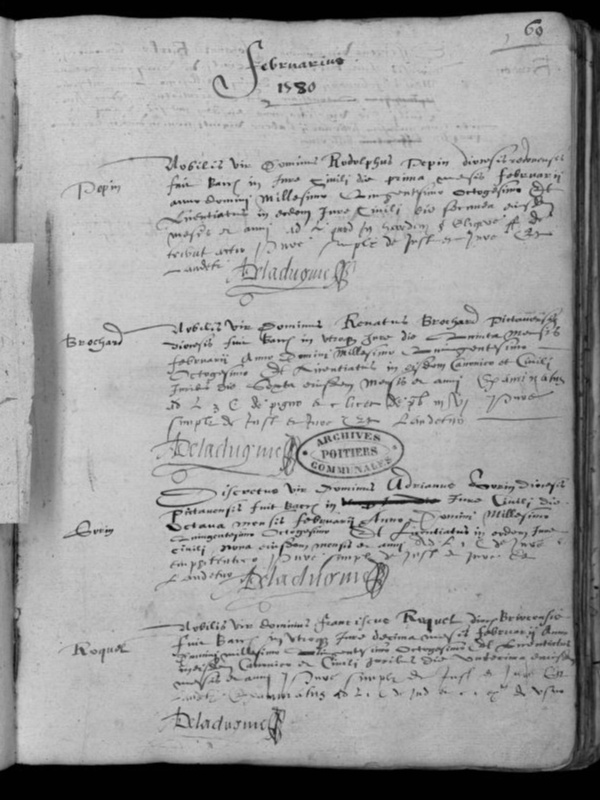 69
Februarius
1580
Pepin
Nobilis vir Dominus Rodolphus Pepin diocesis redonensis
fuit Bacc in Jure Civili die prima mensis februarii
anno Domini Millesimo Quingentesimo Octogesimo Et
Licentiatus in eodem Jure Civili die secunda eiusdem
mensis et anni ad L
Juravit simplr de Just et Jure
Laudetr
Deladugnie
Brochard
Nobilis vir Dominus Renatus Brochard Pictavensis
diocesis fuit Bacc in utroq Jure die Quinta Mensis
februarii Anno Domini Millesimo Quingentesimo
Octogesimo Et Licentiatus in eisdem Canonico et Civili
Juribus die Sexta eiusdem Mensis et anni Examinatus
ad L 3 C de pigno et c
simplr de Just et Jure Laudetur
Deladugnie
ARCHIVES
POITIERS
COMMUNALES
Sorin
Discretus vir Dominus Adrianus Sorin diocesis
Pictavensis fuit Bacc in Jure Civili die
Octava mensis februarii Anno Domini Millesimo
Quingentesimo Octogesimo Et Licentiatus in eodem Jure
Civili Nona eiusdem mensis et anni ad L 1 C de Jure
emphiteutico simplr de Just et Jure
Laudetur
Deladugnie
Roquel
Nobilis vir Dominus franciscus Roquel dioc Briocensis
fuit Bacc in utroq Jure decima mensis februarii Anno
Domini millesimo Quingentesimo Octogesimo Et Licentiatus
in eisdem Canonico et Civili Juribus die Undecima eiusdem
mensis et anni simplr de Just et Jure
Examinatus ad L
Deladugnie